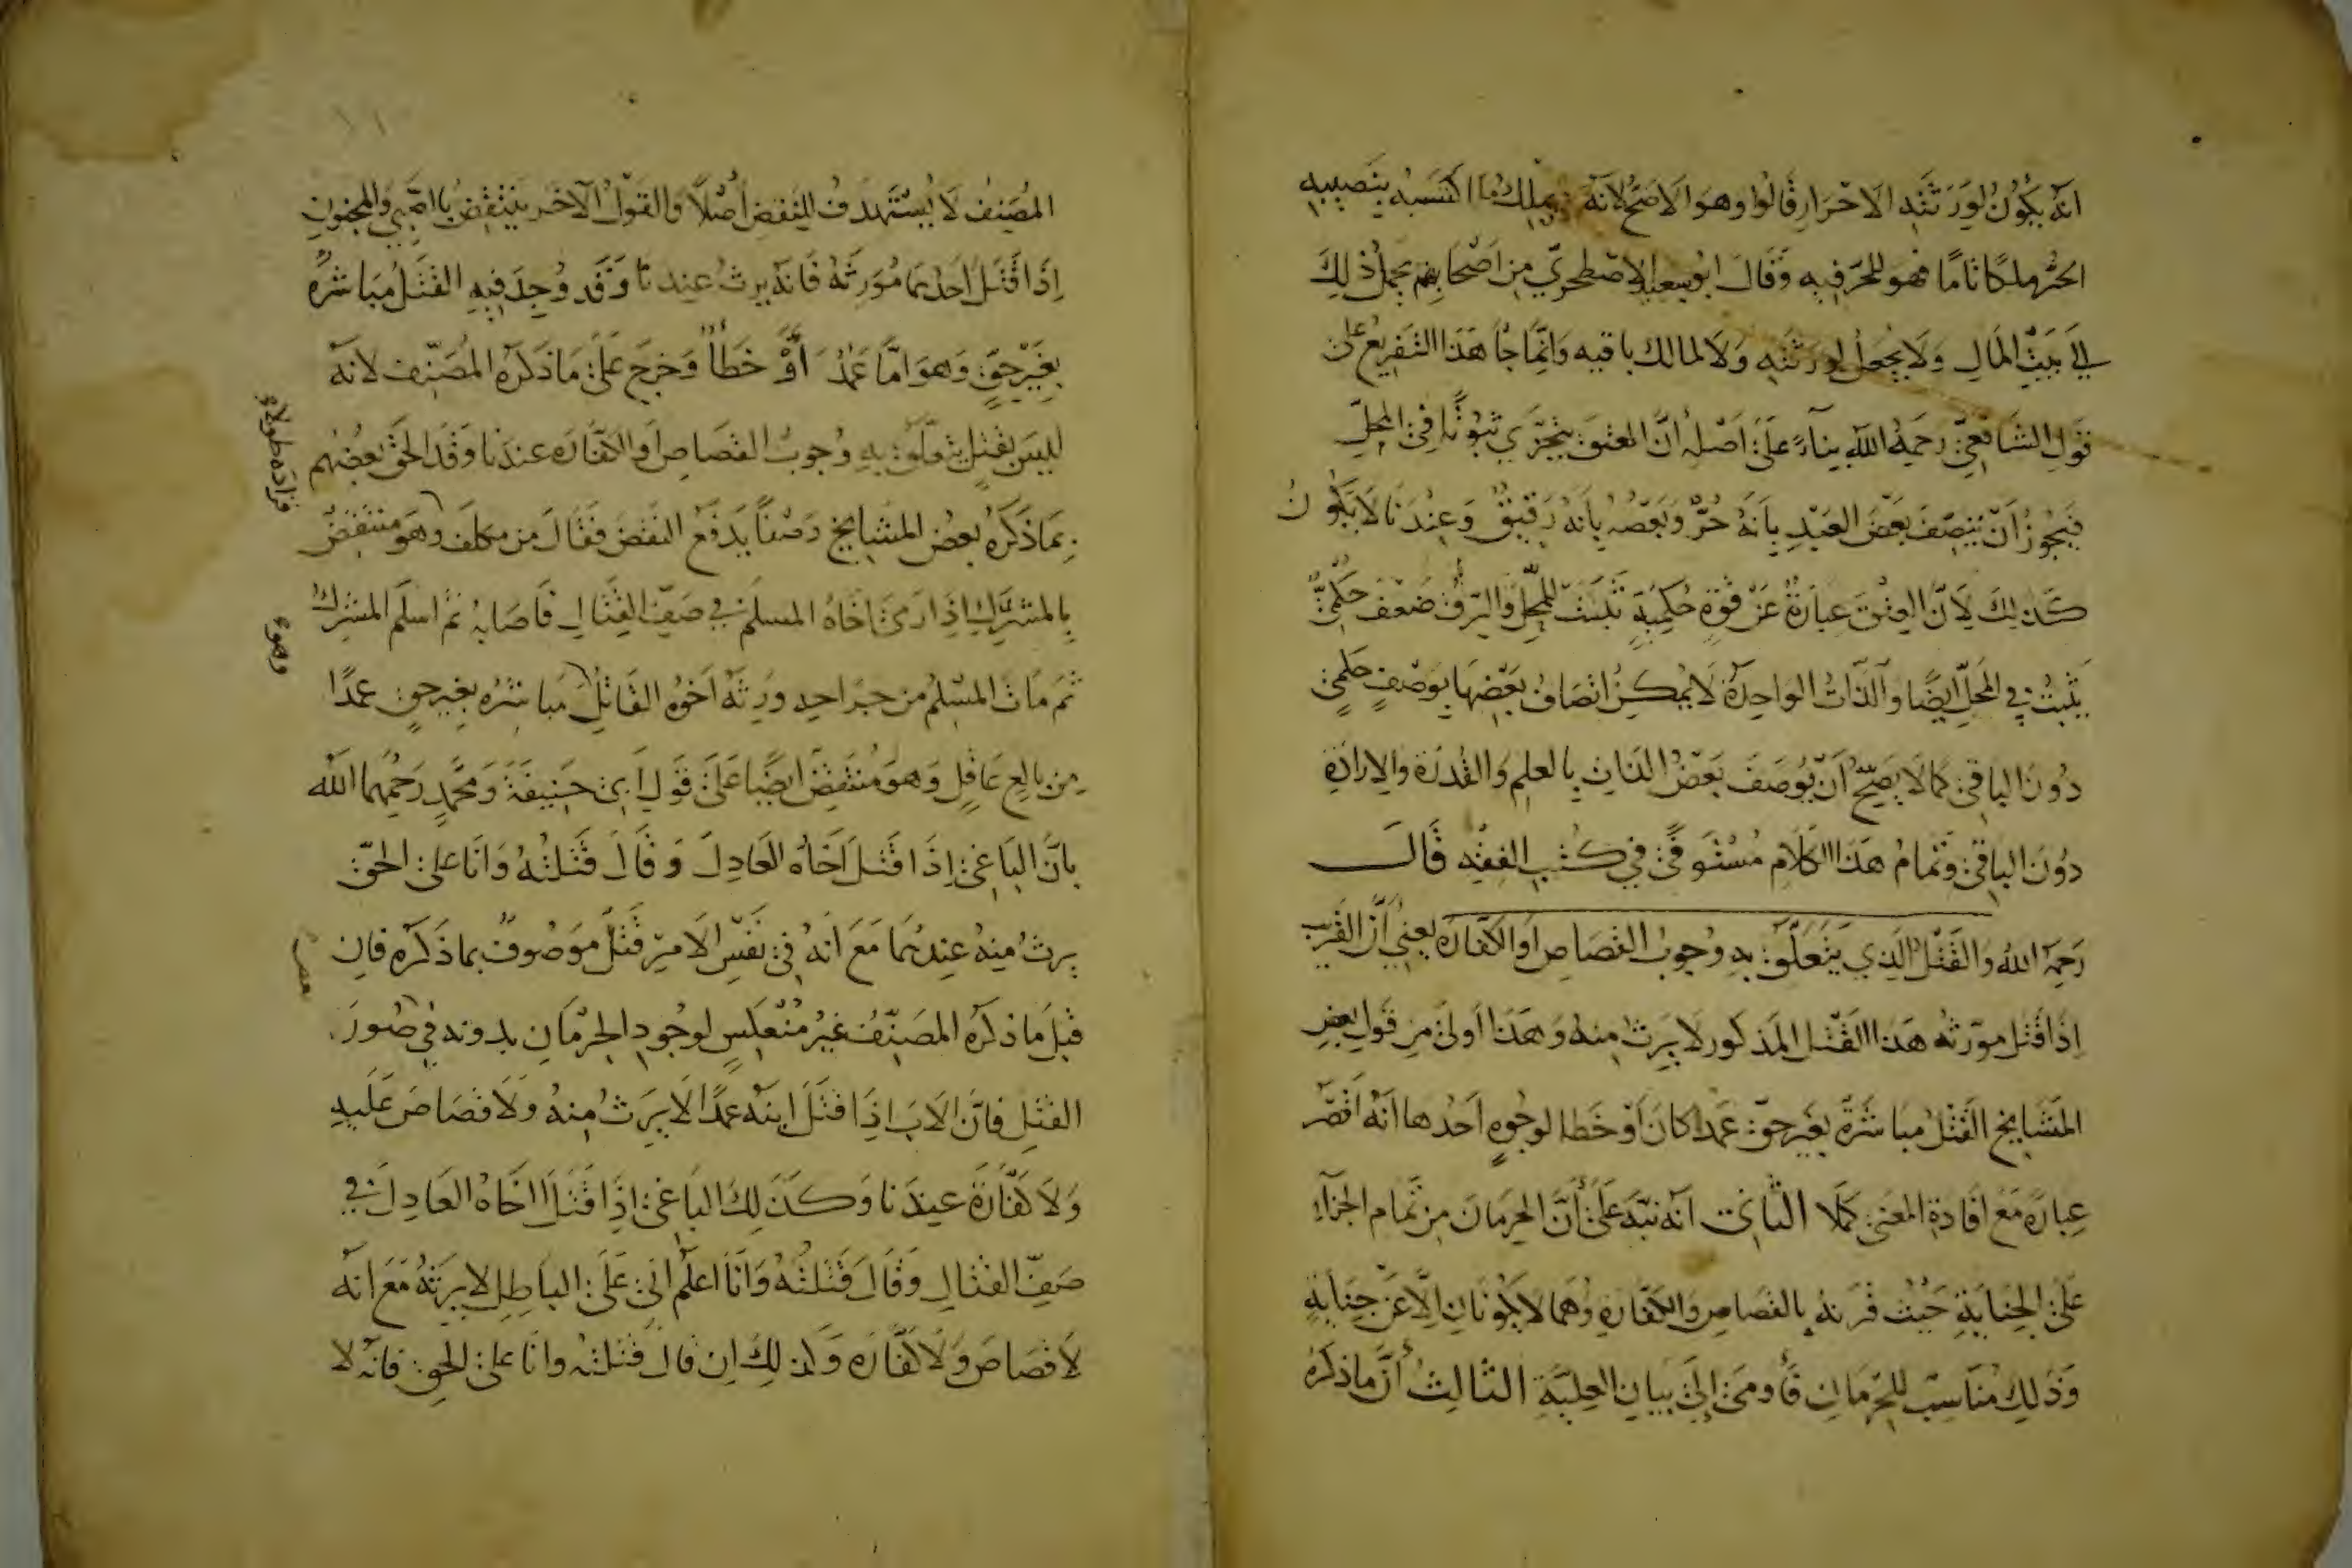 انه يكون لورثته الاحرار قالوا وهو الاصح لانه يملك ما اكتسبه بنصيبه
الحر ملكا تاما فهو للحر فيه وقال ابو سعيد الاصطخري من اصحابهم يجعل ذلك
في بيت المال ولا يجعل لورثته ولا لمالك باقيه وانما جا هذا التفريع على
قول الشافعي رحمه الله بناء على اصله ان العتق يتجزي ثبوتا في المحل
فيجوز ان يتصف بعض العبد بانه حر وبعضه بانه رقيق وعندنا لا يكون
كذلك لان العتق عبارة عن قوة حكمية تثبت للمحل والرق ضعف حكمي
يثبت في المحل ايضا والذات الواحدة لا يمكن اتصاف بعضها بوصف حكمي
دون الباقي كما لا يصح ان يوصف بعض الذات بالعلم والقدرة والارادة
دون الباقي وتمام هذا الكلام مستوفى في كتب الفقه قال
رحمه الله والقتل الذي يتعلق به وجوب القصاص او الكفارة يعني ان القريب
اذا قتل مورثه هذا القتل المذكور لا يرث منه وهذا اولى من قول بعض
المشايخ القتل مباشرة بغير حق عمدا كان او خطا لوجوه احدها انه اقصر
عبارة مع افادة المعنى كملا الثاني انه نبه على أن الحرمان من تمام الجزاء
على الجناية حيث قرنه بالقصاص والكفارة وهما لا يكونان الا عن جناية
وذلك مناسب للحرمان فأومى إلى بيان العلية الثالث أن ما ذكره
المصنف لا يستهدف للنقض أصلا والقول الآخر ينتقض بالصبي والمجنون
اذا قتل احدهما مورثه فانه يرث عندنا وقد وجد فيه القتل مباشرة
بغير حق وهو اما عمد أو خطأ وخرج على ما ذكره المصنف لانه
ليس بقتل يتعلق به وجوب القصاص او الكفارة عندنا وقد الحق بعضهم
بما ذكره بعض المشايخ وصفا يدفع النقض فقال من مكلف وهو منتقض
بالمشرك اذا رمى اخاه المسلم في صف القتال فاصابه ثم اسلم المشرك
ثم مات المسلم من جراحه ورثه اخوه القاتل مباشره بغير حق عمدا
من بالغ عاقل وهو منتقض ايضا على قول ابي حنيفة ومحمد رحمهما الله
بان الباغي اذا قتل اخاه العادل وقال قتلته وانا على الحق
يرث منه عندهما مع انه في نفس الامر قتل موصوف بما ذكره فان
قيل ما ذكره المصنف غير منعكس لوجود الحرمان بدونه في صور
القتل فان الاب اذا قتل ابنه عمدا لا يرث منه ولا قصاص عليه
ولا كفارة عندنا وكذلك الباغي اذا قتل اخاه العادل في
صف القتال وقال قتلته وانا اعلم اني على الباطل لا يرثه مع انه
لا قصاص ولا كفارة وكذلك ان قال قتلته وانا على الحق فانه لا
وهو